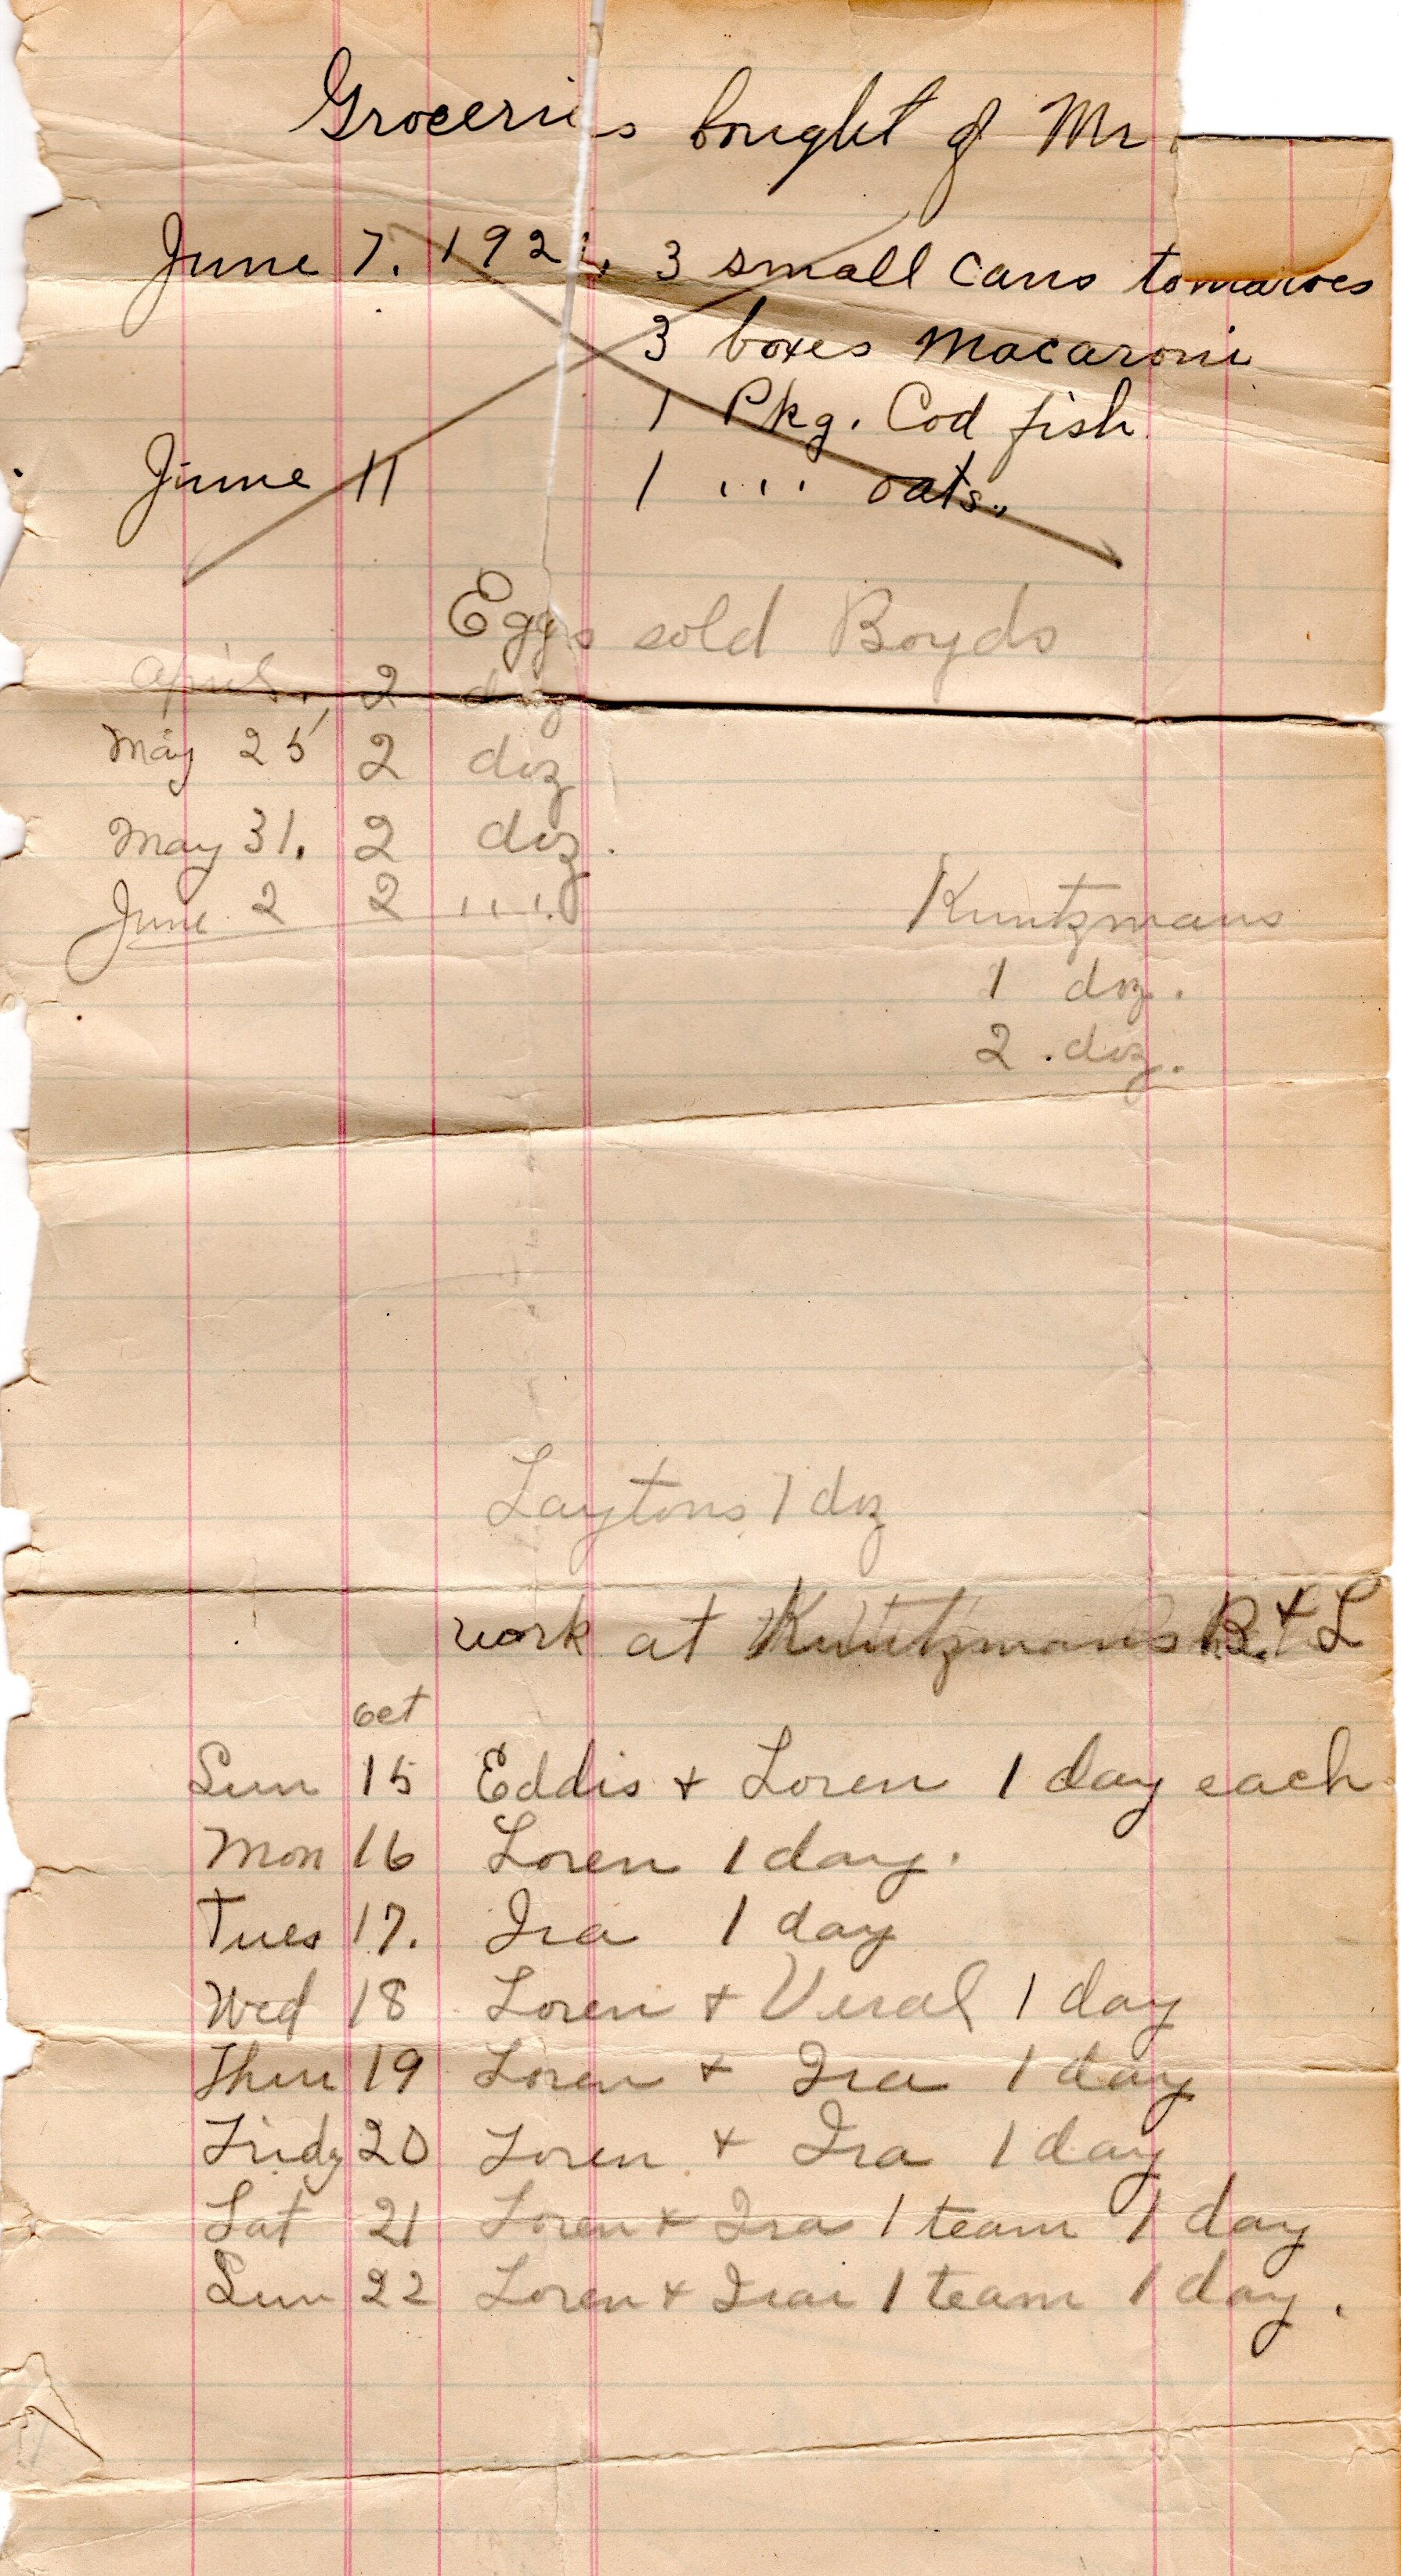 Groceries bought of Mr
June 7. 192 3 small cans tomatoes
3 boxes Macaroni
1 Pkg. Cod fish
June 11 1 ... oats.
Eggs sold Boyds
April 2 doz
May 25 2 doz
May 31. 2 doz.
June 2 2 ....
Kuntzmans
1 doz.
2 doz.
Laytons 1 doz
work at Kuntzmans R. + L
Oct
Sun 15 Eddis + Loren 1 day each
Mon 16 Loren 1 day.
Tues 17. Ira 1 day
Wed 18 Loren + Veral 1 day
Thur 19 Loren + Ira 1 day
Fridy 20 Loren + Ira 1 day
Sat 21 Loren + Ira 1 team 1 day
Sun 22 Loren + Ira 1 team 1 day.